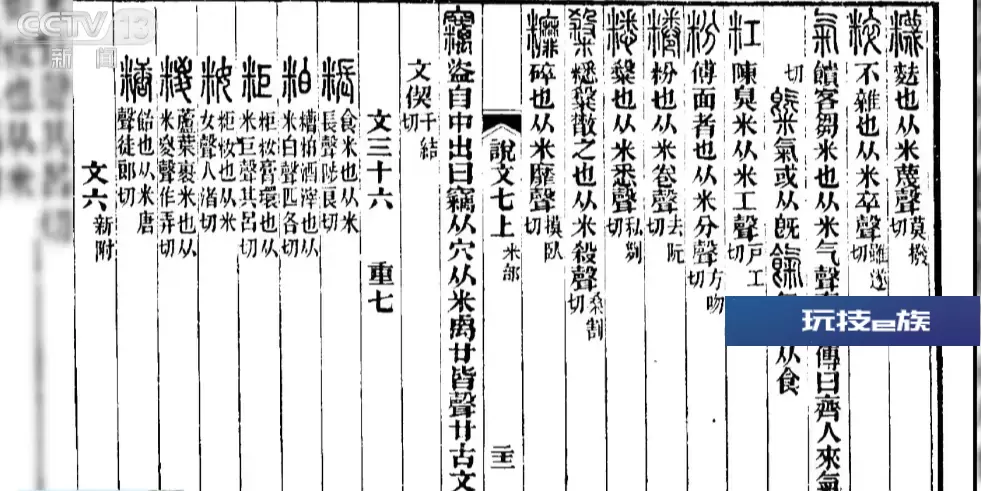 CCTV 13
新闻
麩也从米蔑聲莫撥切
粹不雜也从米卒聲雖遂切
氣饋客芻米也从米气聲傳曰齊人來氣
切氣或从既从食
粠陳臭米从米工聲戶工切
粉傅面者也从米分聲方吻切
粉也从米卷聲去阮切
也从米悉聲私列切
散之也从米殺聲桑割切
碎也从米靡聲摸臥切
說文七上 米部
竊盜自中出曰竊从穴从米禼廿皆聲廿古文
文偰千結切
文三十六 重七
粻食米也从米長聲陟良切
粕糟粕酒滓也从米白聲匹各切
粔粔籹膏環也从米巨聲其呂切
籹粔籹也从米女聲人渚切
糉蘆葉裹米也从米㚇聲作弄切
糖飴也从米唐聲徒郎切
文六新附
玩技e族